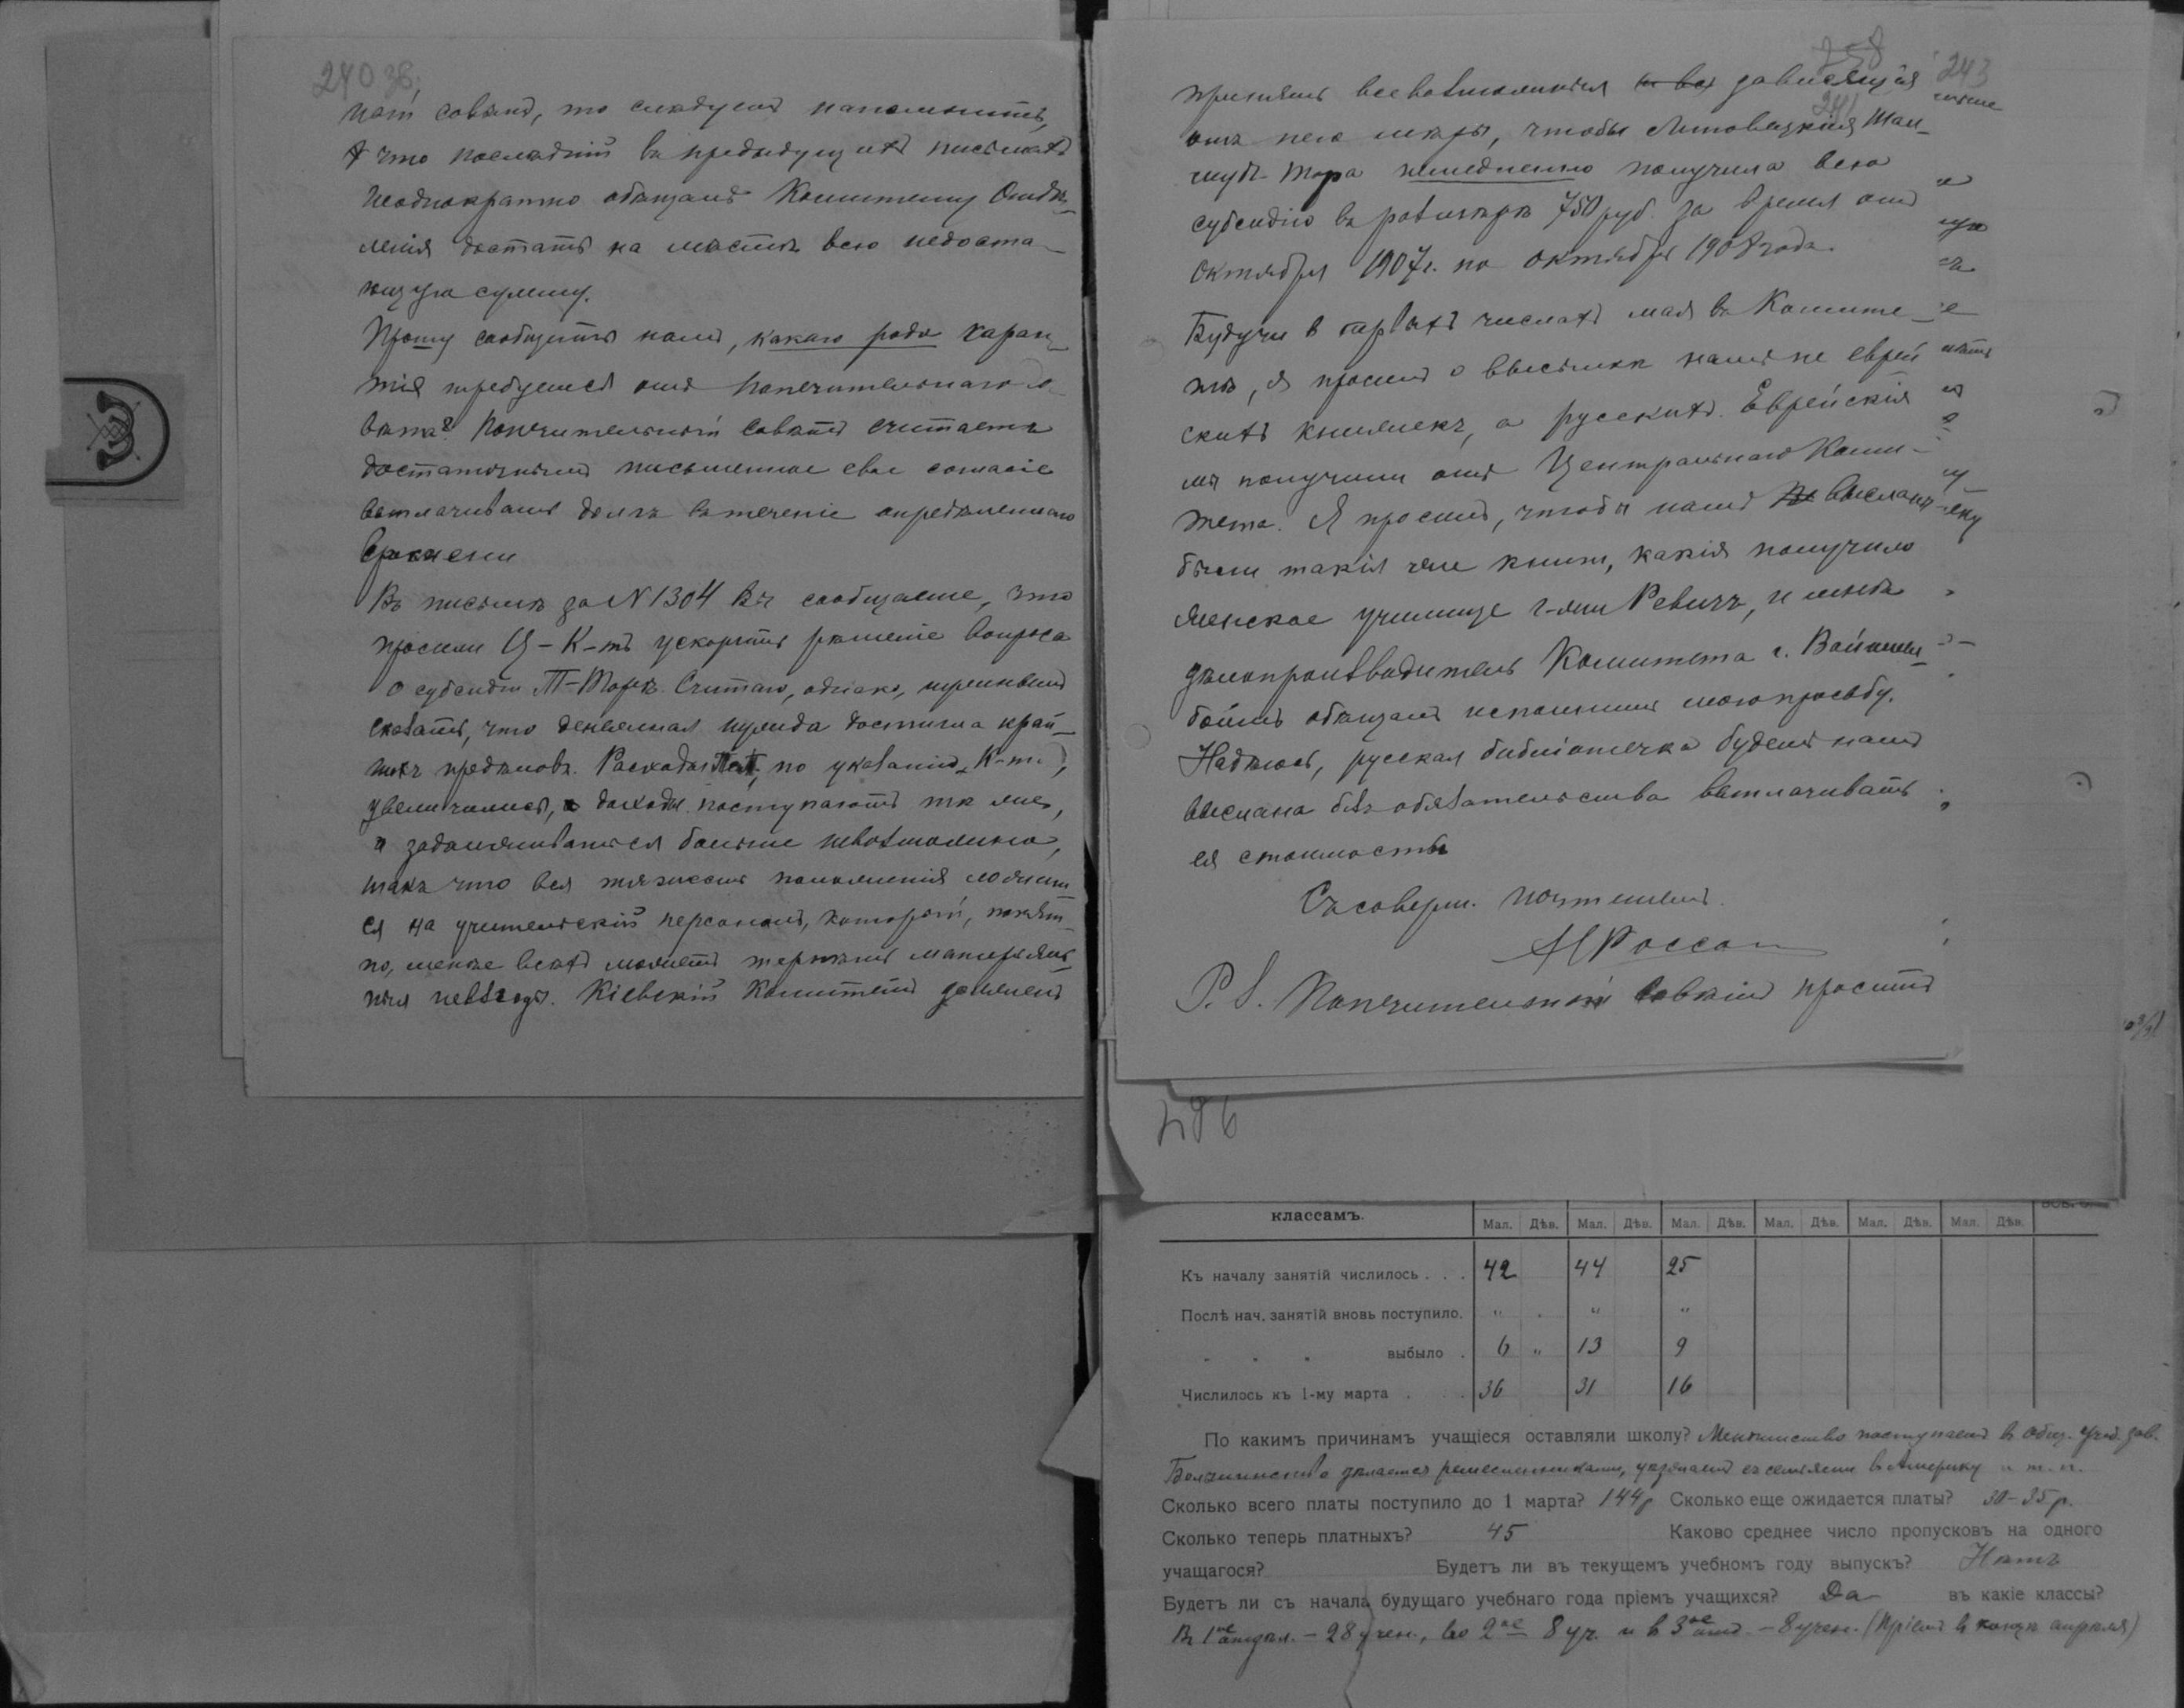 240 36,
ный совѣтъ, то слѣдуетъ напомнить,
что послѣдній въ предыдущихъ письмахъ
неоднократно обѣщалъ Комитету Отдѣ-
ленія достать на мѣстѣ всю недоста-
ющую сумму.
Прошу сообщить намъ, какого рода гаран-
тія требуется отъ Попечительнаго Со-
вѣта? Попечительный Совѣтъ считаетъ
достаточнымъ письменное свое согласіе
выплачивать долгъ въ теченіе опредѣленнаго
времени
Въ письмѣ за N 1304 Вы сообщаете, что
просили Ц-К-тъ ускорить рѣшеніе вопроса
о субсидіи Т-Торѣ. Считаю, однако, нужнымъ
сказать, что денежная нужда достигла край-
нихъ предѣловъ. Расходы, по указанію К-та,
увеличились, доходы поступаютъ тѣ же,
и задолживаться больше невозможно,
такъ что вся тяжесть положенія ложит-
ся на учительскій персоналъ, который, понят-
но, менѣе всѣхъ можетъ терпѣть матерьяль-
ныя невзгоды. Кіевскій Комитетъ долженъ
258
243
241
принять всевозможныя и всѣ зависящія
отъ него мѣры, чтобы Литовецкія Тал-
мудъ-Тора немедленно получила всю
субсидію въ размѣрѣ 750 руб. за время отъ
Октября 1907 г. по Октябрь 1908 года.
Будучи в первыхъ числахъ мая въ Комите-
тѣ, я просилъ о высылкѣ намъ не еврей
скихъ книжекъ, а русскихъ. Еврейскія
мы получили отъ Центральнаго Коми-
тета. Я просилъ, чтобы намъ высланы
были такія же книги, какія получило
женское училище г-жи Ревичъ, и мнѣ
дѣлопроизводитель Комитета г.
обѣщалъ исполнить мою просьбу.
Надѣюсь, русская библіотечка будетъ намъ
выслана безъ обязательства выплачивать
ея стоимость
Съ соверш. почтеніемъ
Россо
P.S. Попечительный Совѣтъ проситъ
286
классамъ. Мал. Дѣв. Мал. Дѣв. Мал. Дѣв. Мал. Дѣв. Мал. Дѣв. Мал. Дѣв.
Къ началу занятій числилось . . . 42 44 25
Послѣ нач. занятій вновь поступило. " " "
" " " выбыло . 6 " 13 9
Числилось къ 1-му марта . . . 36 31 16
По какимъ причинамъ учащіеся оставляли школу? Меньшинство поступаетъ въ общ. учеб. зав.
Большинство дѣлается ремесленниками, уѣзжаетъ съ семьями въ Америку и т. п.
Сколько всего платы поступило до 1 марта? 144 р Сколько еще ожидается платы? 30-35 р.
Сколько теперь платныхъ? 45 Каково среднее число пропусковъ на одного
учащагося? Будетъ ли въ текущемъ учебномъ году выпускъ? Нѣтъ
Будетъ ли съ начала будущаго учебнаго года пріемъ учащихся? Да въ какіе классы?
Въ 1ое отдѣл. – 28 учен., во 2ое 8 уч. и в 3ое отд. – 8 учен. (Пріемъ в концѣ апрѣля)